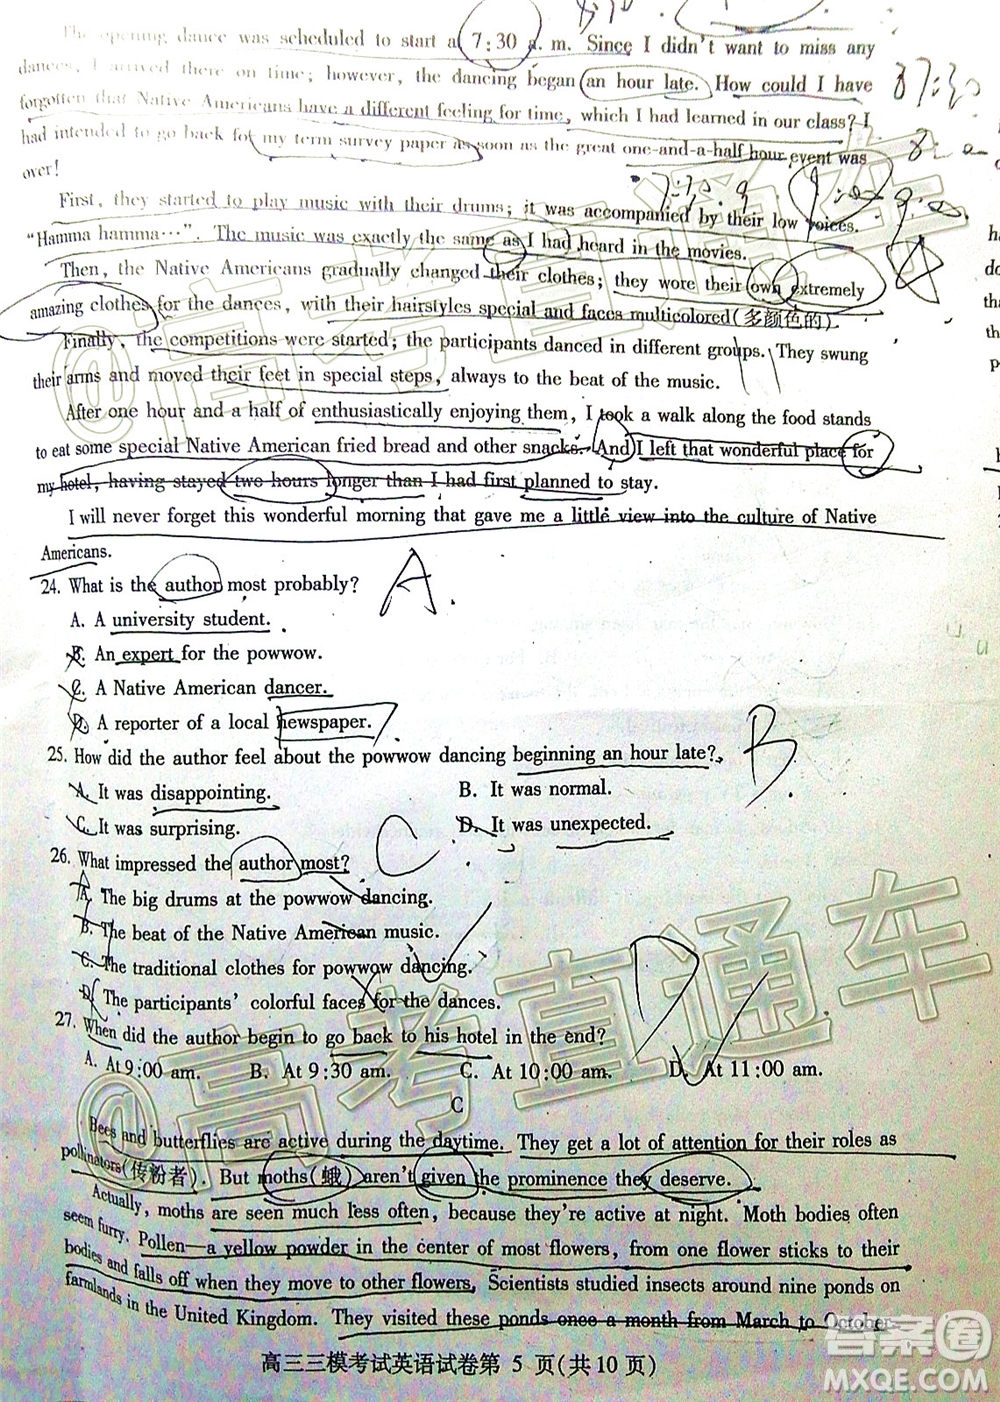 The opening dance was scheduled to start a 7:30 a. m. Since I didn't want to miss any
dances, I arrived there on time; however, the dancing began an hour late. How could I have
forgotten that Native Americans have a different feeling for time, which I had learned in our class? I
had intended to go back for my term survey paper as soon as the great one-and-a-half hour event was
over!
First, they started to play music with their drums; it was accompanied by their low voices.
“Hamma hamma…”. The music was exactly the same as I had heard in the movies.
Then, the Native Americans gradually changed their clothes; they wore their own extremely
amazing clothes for the dances, with their hairstyles special and faces multicolored(多颜色的).
Finally, the competitions were started; the participants danced in different groups. They swung
their arms and moved their feet in special steps, always to the beat of the music.
After one hour and a half of enthusiastically enjoying them, I took a walk along the food stands
to eat some special Native American fried bread and other snacks. And I left that wonderful place for
my hotel, having stayed two hours longer than I had first planned to stay.
I will never forget this wonderful morning that gave me a little view into the culture of Native
Americans.
24. What is the author most probably?
A.
A. A university student.
B. An expert for the powwow.
C. A Native American dancer.
D. A reporter of a local newspaper.
25. How did the author feel about the powwow dancing beginning an hour late?
B.
A. It was disappointing. B. It was normal.
C. It was surprising. D. It was unexpected.
26. What impressed the author most?
C
A. The big drums at the powwow dancing.
B. The beat of the Native American music.
C. The traditional clothes for powwow dancing.
D. The participants' colorful faces for the dances.
D
27. When did the author begin to go back to his hotel in the end?
A. At 9:00 am. B. At 9:30 am. C. At 10:00 am. D. At 11:00 am.
C
Bees and butterflies are active during the daytime. They get a lot of attention for their roles as
pollinators(传粉者). But moths(蛾) aren't given the prominence they deserve.
Actually, moths are seen much less often, because they're active at night. Moth bodies often
seem furry. Pollen—a yellow powder in the center of most flowers, from one flower sticks to their
bodies and falls off when they move to other flowers. Scientists studied insects around nine ponds on
farmlands in the United Kingdom. They visited these ponds once a month from March to October.
高三三模考试英语试卷第 5 页(共10页)
@高考直通车
@高考直通车
答案圈
MXQE.COM